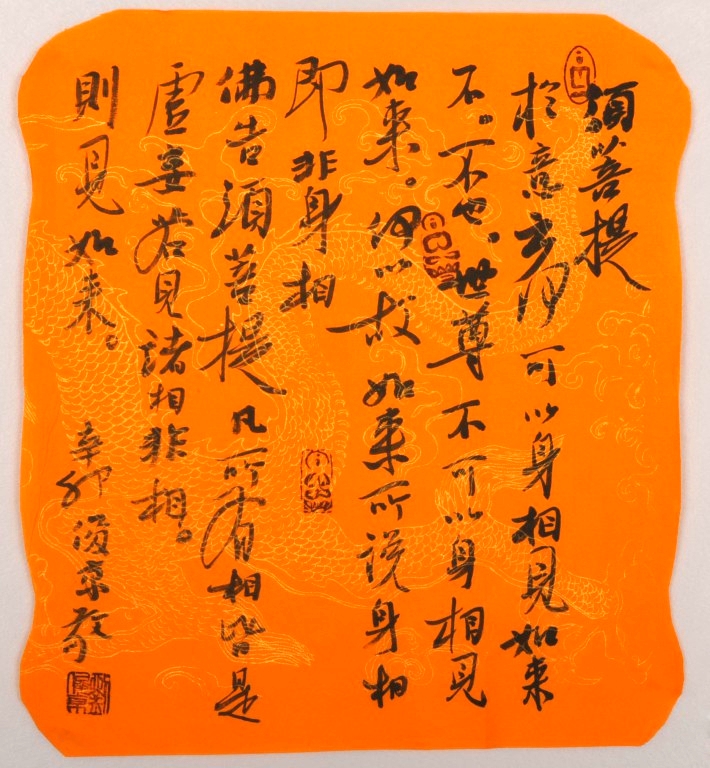 須菩提
於意云何可以身相見如来
不。不也、世尊不可以身相見
如来。何以故如来所说身相
即非身相
佛告須菩提凡所有相皆是
虚妄若見諸相非相。
則見如来。
辛卯